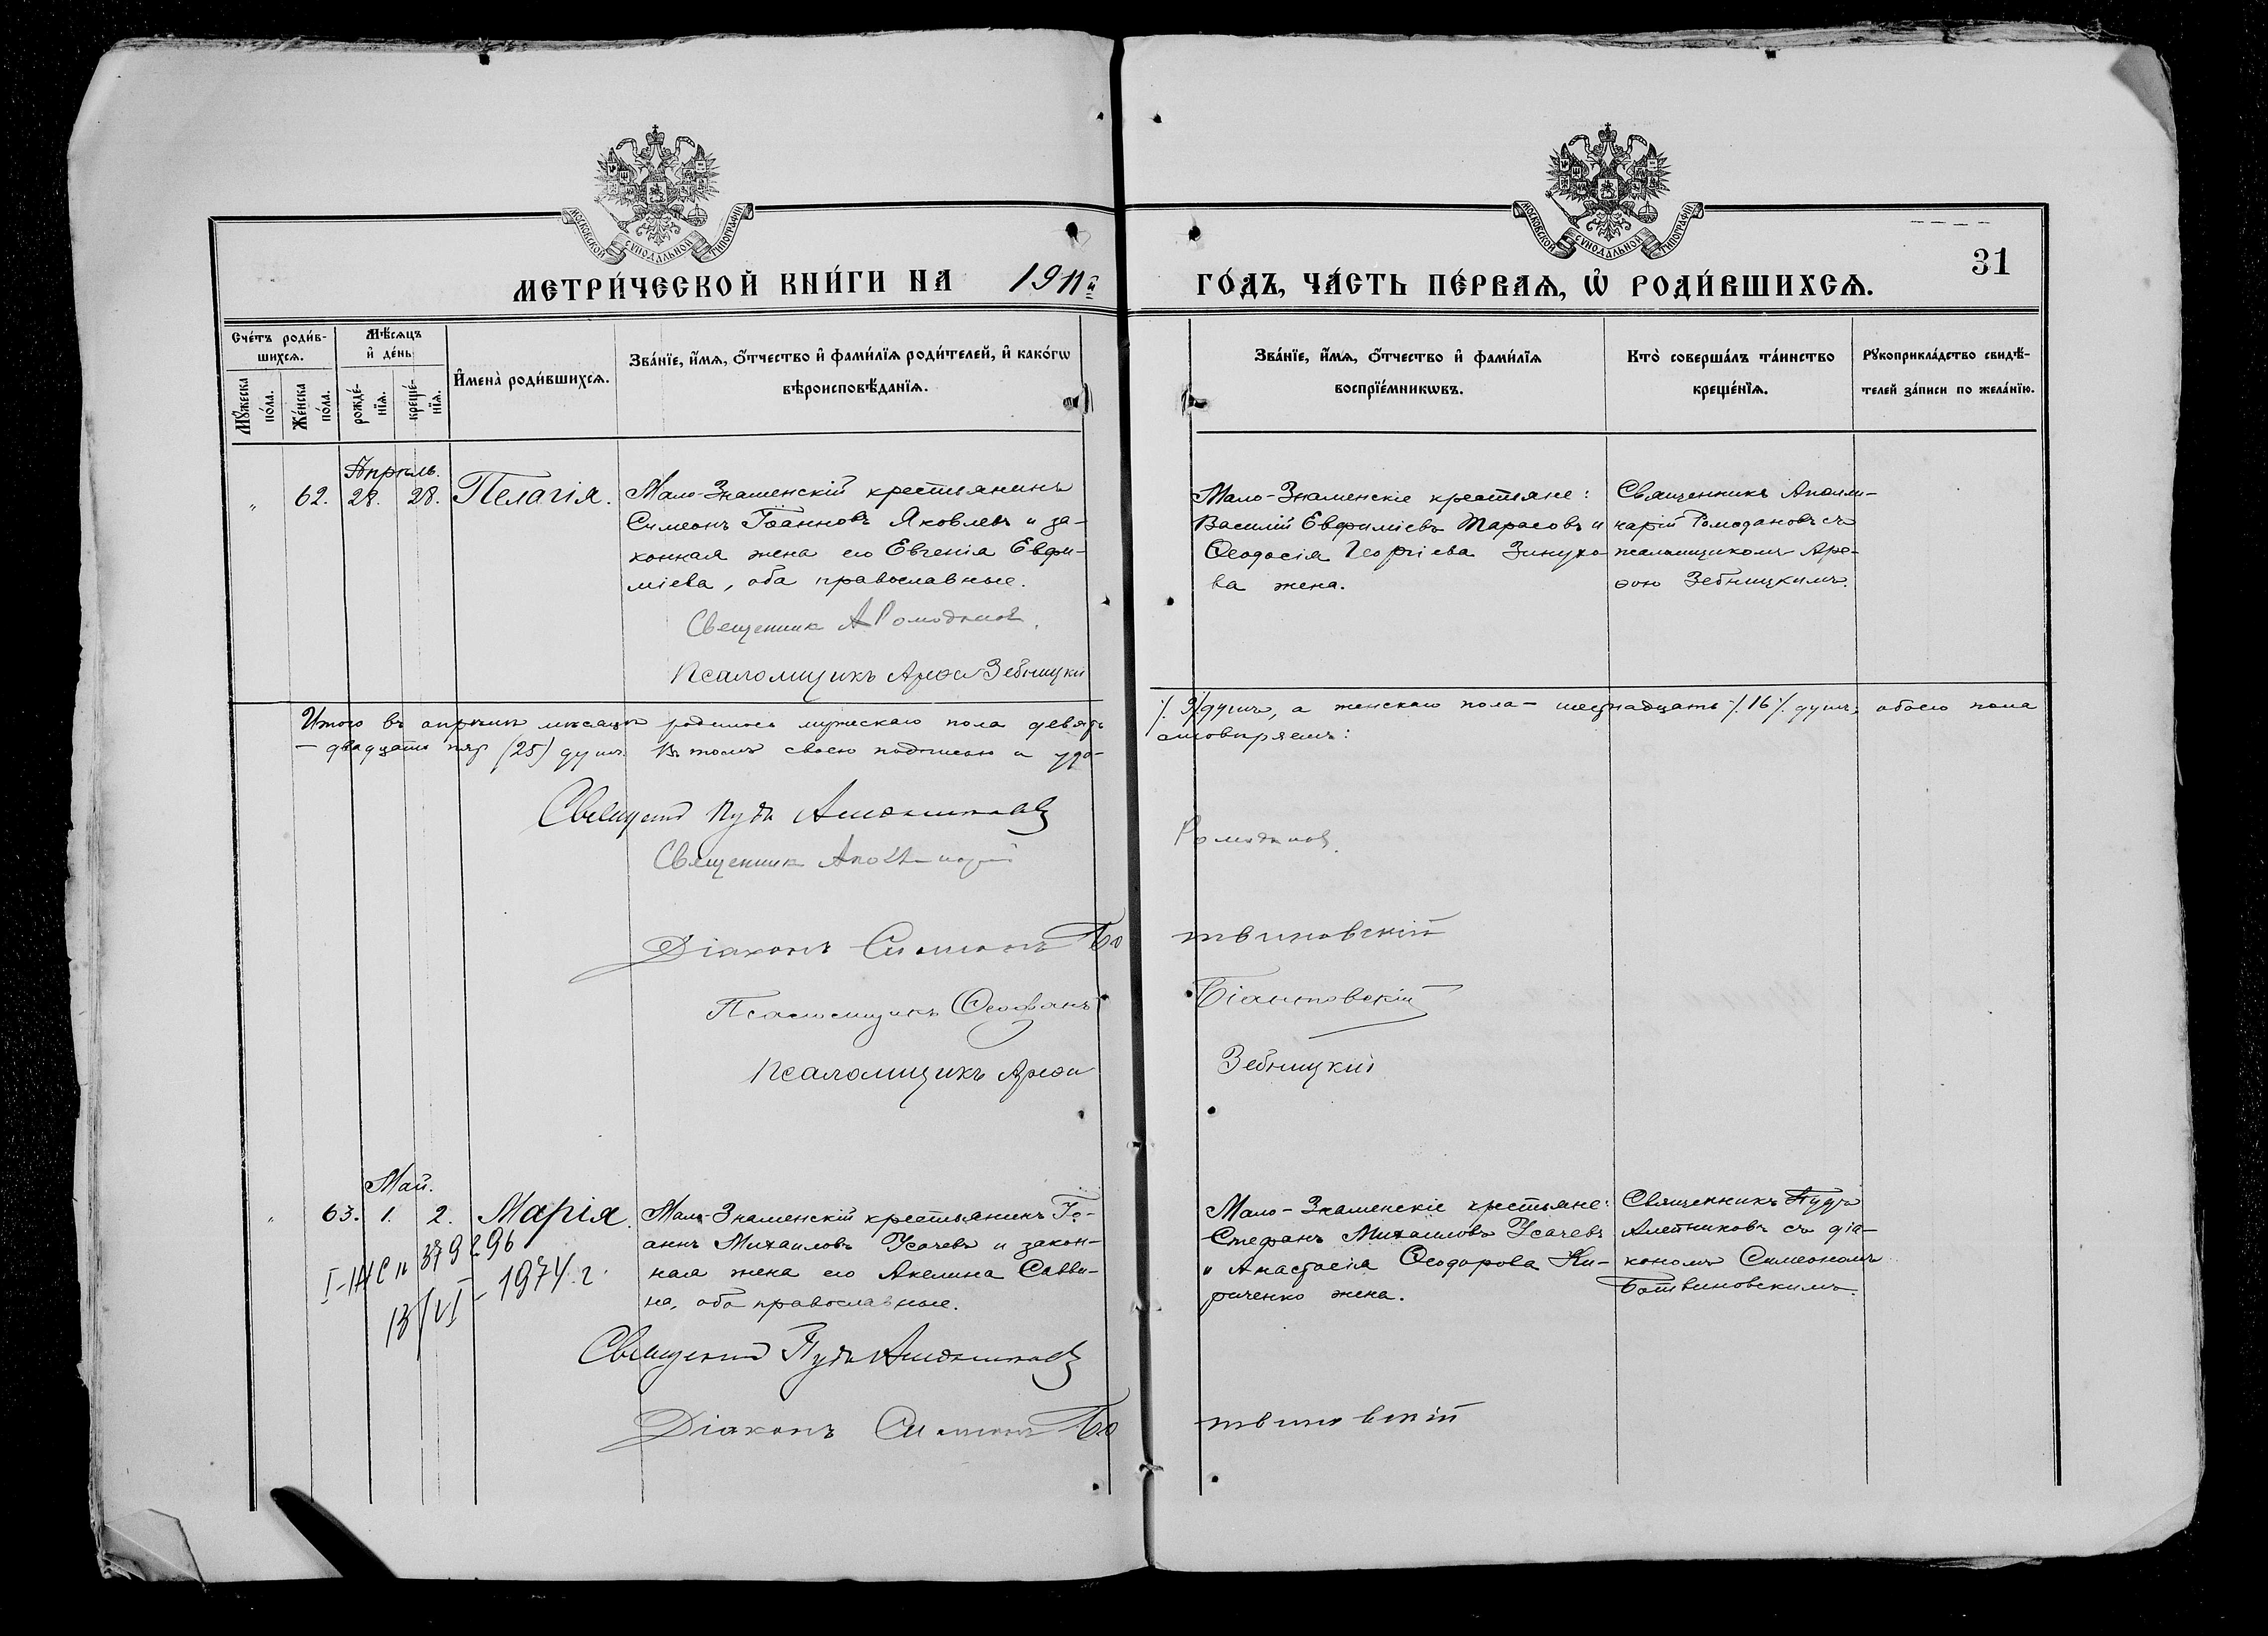 МОСКОВСКОЙ СѴНОДАЛЬНОЙ ТИПОГРАФІИ
МОСКОВСКОЙ СѴНОДАЛЬНОЙ ТИПОГРАФІИ
МЕТРИ́ЧЕСКОЙ КНИ́ГИ НА 1911й ГО́ДЪ, ЧА́СТЬ ПЕ́РВАѦ, Ѡ РОДИ́ВШИХСѦ.
31
Сче́тъ роди́в-
шихсѧ.
Мꙋ́жеска
по́ла.
Же́нска
по́ла.
Мѣ́сѧцъ
и҆ де́нь
рожде́-
нїѧ.
креще́-
нїѧ.
И҆мена̀ роди́вшихсѧ.
Зва́нїе, и҆́мѧ, ѻ҆́тчество и҆ фами́лїѧ роди́телей, и҆ како́гѡ
вѣроисповѣ́данїѧ.
Зва́нїе, и҆́мѧ, ѻ҆́тчество и҆ фами́лїѧ
воспрїе́мникѡвъ.
Кто̀ соверша́лъ та́инство
креще́нїѧ.
Рꙋкоприкла́дство свидѣ́-
телей за́писи по жела́нїю.
Апрѣль.
" 62. 28. 28. Пелагія.
Мало-Знаменскій крестьянинъ
Симеонъ Іоанновъ Яковлевъ и за-
конная жена его Евгенія Евфи-
міева, оба православные.
Священник А Ромоданов.
Псаломщикъ Арефа Зебницкій
Мало-Знаменскіе крестьяне:
Василій Евфиміевъ Тарасовъ и
Ѳеодосія Георгіева Зинухо
ва жена.
Священникъ Аполли-
нарій Ромодановъ съ
псаломщикомъ Аре-
ѳою Зебницкимъ.
Итого въ апрѣлѣ мѣсяцѣ родилось мужескаго пола девять /. 9 ./ душъ, а женскаго пола - шестнадцать /. 16 ./ душъ, обоего пола
- двадцать пять (25) душъ. Въ томъ своею подписью и удо-
стовѣряемъ:
Священник Пудъ
Священник Аполлинарій Ромоданов.
Діаконъ Симеонъ Ботвиновскій
Псаломщикъ Ѳеофанъ
Псаломщикъ Арефа Зебницкій
Май.
" 63. 1. 2. Марія.
379296
13/VI - 1974 г.
Мало-Знаменскій крестьянинъ Іо-
аннъ Михаиловъ Усачевъ и закон-
ная жена его Акелина Савви-
на, оба православные.
Священник Пудъ
Діаконъ Симеонъ Ботвиновскій
Мало-Знаменскіе крестьяне:
Стефанъ Михаиловъ Усачевъ
и Анастасія Ѳеодорова Ки-
риченко жена.
Священникъ Пудъ
Алетниковъ съ діа-
кономъ Симеономъ
Ботвиновскимъ.